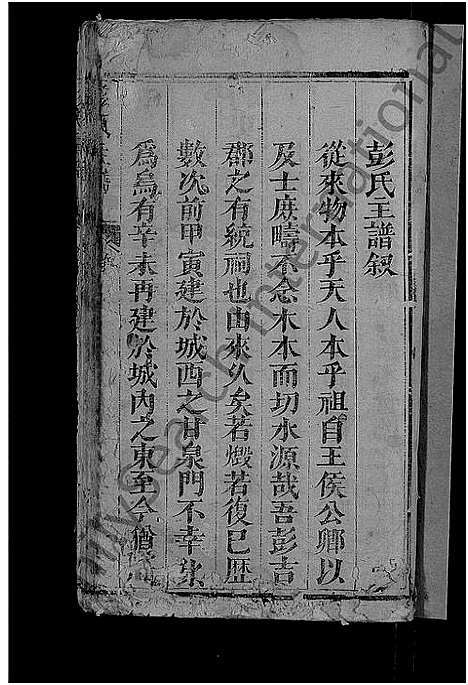 彭氏主譜叙
從來物本乎天人本乎祖自王侯公卿以
及士庶疇不念木本而切水源哉吾彭吉
郡之有統祠也由來久矣若燬若復已歷
數次前甲寅建於城西之甘泉門不幸
爲烏有辛未再建於城內之東至今猶
International